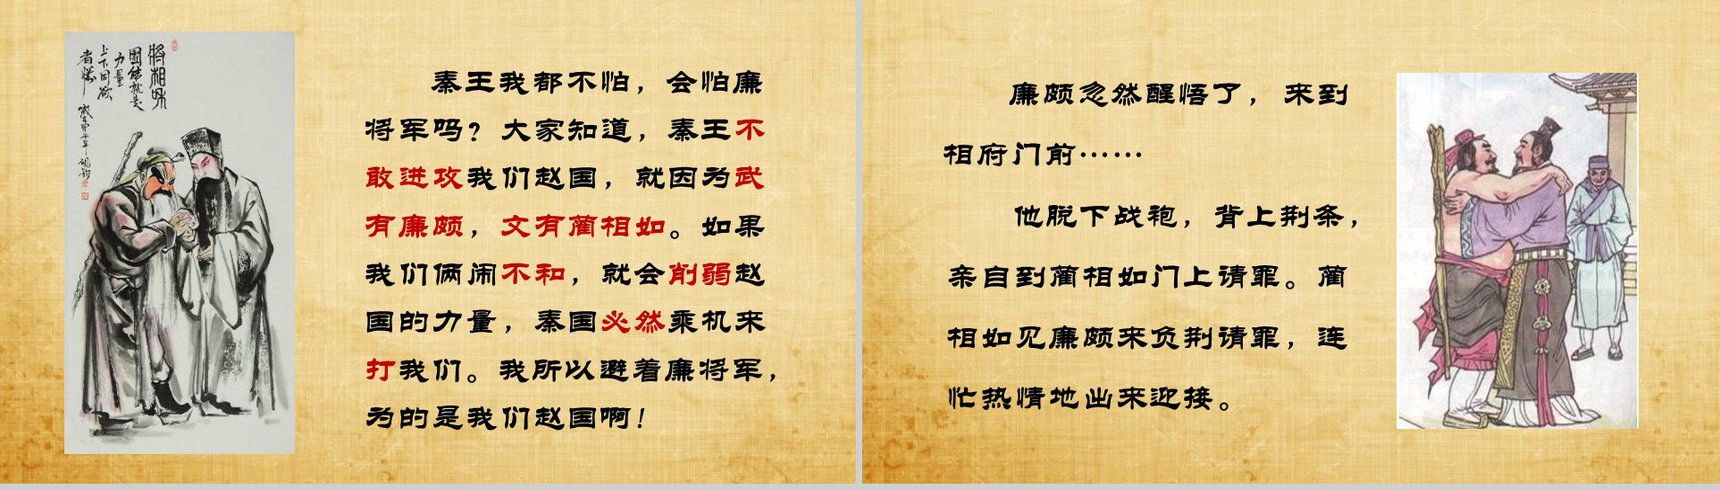 将相和
团结就是
力量
上下同欲
者胜
秦王我都不怕，会怕廉
将军吗？大家知道，秦王不
敢进攻我们赵国，就因为武
有廉颇，文有蔺相如。如果
我们俩闹不和，就会削弱赵
国的力量，秦国必然乘机来
打我们。我所以避着廉将军，
为的是我们赵国啊！
廉颇忽然醒悟了，来到
相府门前……
他脱下战袍，背上荆条，
亲自到蔺相如门上请罪。蔺
相如见廉颇来负荆请罪，连
忙热情地出来迎接。